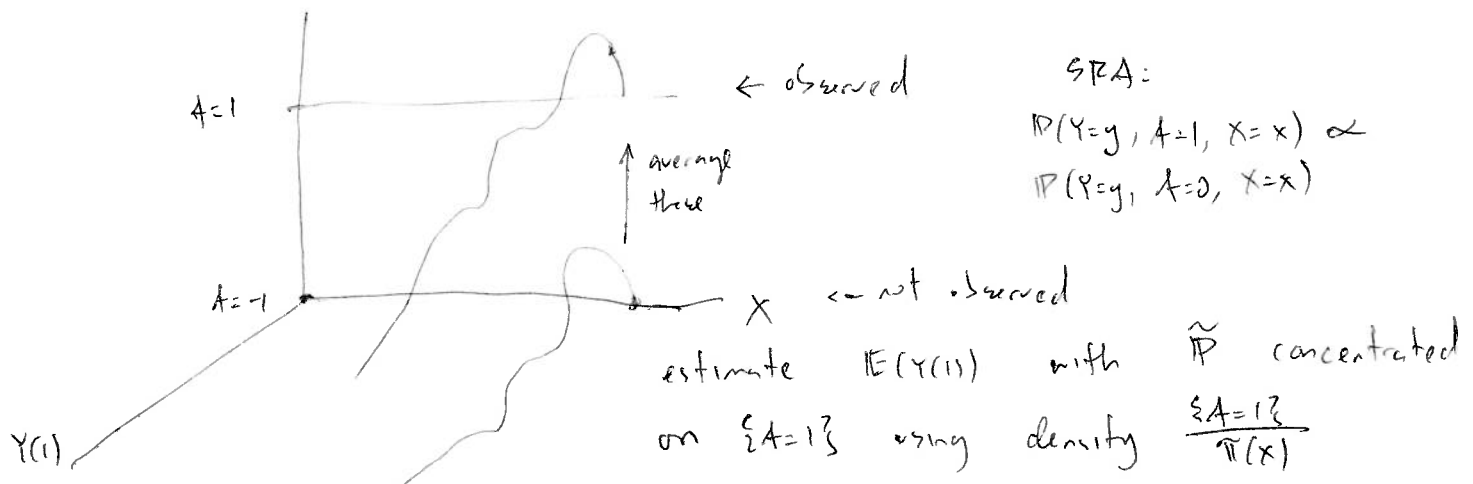 A=1
← observed
SRA:
P(Y=y, A=1, X=x) ∝
P(Y=y, A=0, X=x)
↑ average
these
A=-1
X ← not observed
estimate E(Y(1)) with P̃ concentrated
on {A=1} using density {A=1}/π(x)
Y(1)